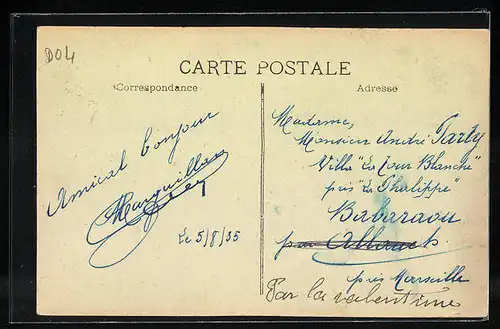 D04
CARTE POSTALE
Correspondance
Adresse
Amical bonjour
Le 5/8/35
Madame,
Monsieur André Tardy
Villa "La Tour Blanche"
près "La
par Allauch
près Marseille
Par la valentine